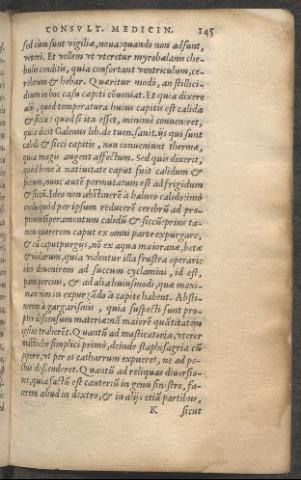 CONSVLT. MEDICIN. 145
sed cùm sunt vigiliæ, noua: quando non adsunt,
veteri. Et vellem vt vteretur myrobalanis che-
bulis conditis, quia confortant ventriculum, ce-
rebrum & hebar. Quæritur modò, an stillici-
dium in hoc casu capiti cōueniat. Et quia dixere
quod temperatura huius capitis est calida
& sicca: quod si ita esset, minimè conueniret,
quia dicit Galenus lib. de tuen. sanit. ijs qui sunt
calidi & sicci capitis, non conueniunt thermæ,
quia magis augent affectum. Sed quis dixerit,
quòd bene à natiuitate caput fuit calidum &
siccum, nunc autē permutatum est ad frigidum
& siccū. Ideo non abstinerē à balneo calido: imò
quòd per ipsum reducerē cerebrū ad pro-
prium temperamentum calidū & siccū: prius ta-
men quererem caput ex omni parte expurgare,
& cū caput purgus, nō ex aqua maioranæ, betæ
& violarum, quia videntur illa frustra operari:
ideo deuenirem ad succum cyclamini, id est,
panis porcini, & ad alia huiusmodi, quæ maxi-
mam vim in expurgādo à capite habent. Absti-
nerem à gargarismis, quia suspecti sunt pro-
pter descensum materiæ: nā maiorē quātitatem
ipsius traherēt. Quantū ad masticatoria, vterer
mastiche simplici primò, deinde staphisagria cū
pipere, vt per os catharrum expueret, ne ad pe-
ctus descenderet. Quantū ad reliquas diuersio-
nes, quia factū est cauteriū in genu sinistro, fa-
cerem aliud in dextro, & in alijs etiā partibus,
K sicut